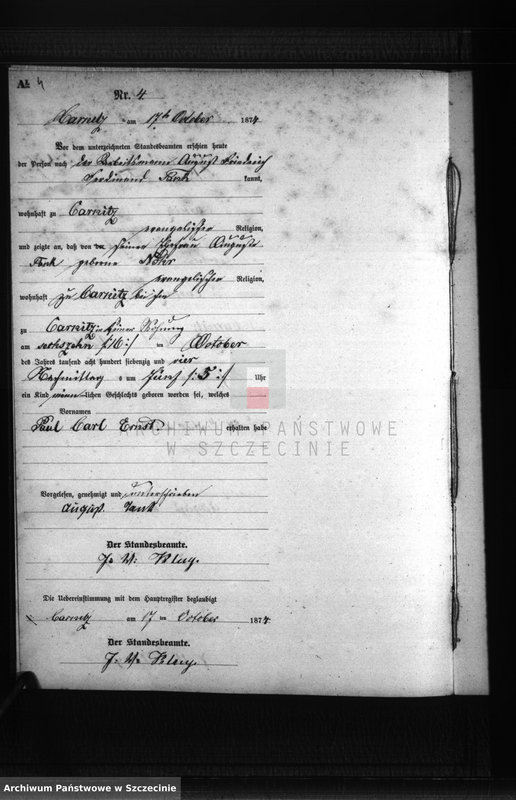 A1. 4
Nr. 4.
Carnitz am 17ten October 1874.
Vor dem unterzeichneten Standesbeamten erschien heute
der Person nach der Arbeitsmann August Friedrich
Ferdinand kannt,
wohnhaft zu Carnitz
evangelischer Religion,
und zeigte an, daß von der seiner Ehefrau Auguste
geborene
evangelischer Religion,
wohnhaft zu Carnitz bei ihm
zu Carnitz in seiner Wohnung
am sechszehn t/:16:/ en October
des Jahres tausend acht hundert siebenzig und vier
Nachmittag s um fünf /: 5 :/ Uhr
ein Kind männ lichen Geschlechts geboren worden sei, welches
Vornamen
Paul Carl Ernst erhalten habe
Vorgelesen, genehmigt und unterschrieben
August
Der Standesbeamte.
J. V.
Die Uebereinstimmung mit dem Hauptregister beglaubigt
Carnitz am 17 ten October 1874.
Der Standesbeamte.
J. V.
ARCHIWUM PAŃSTWOWE
W SZCZECINIE
Archiwum Państwowe w Szczecinie